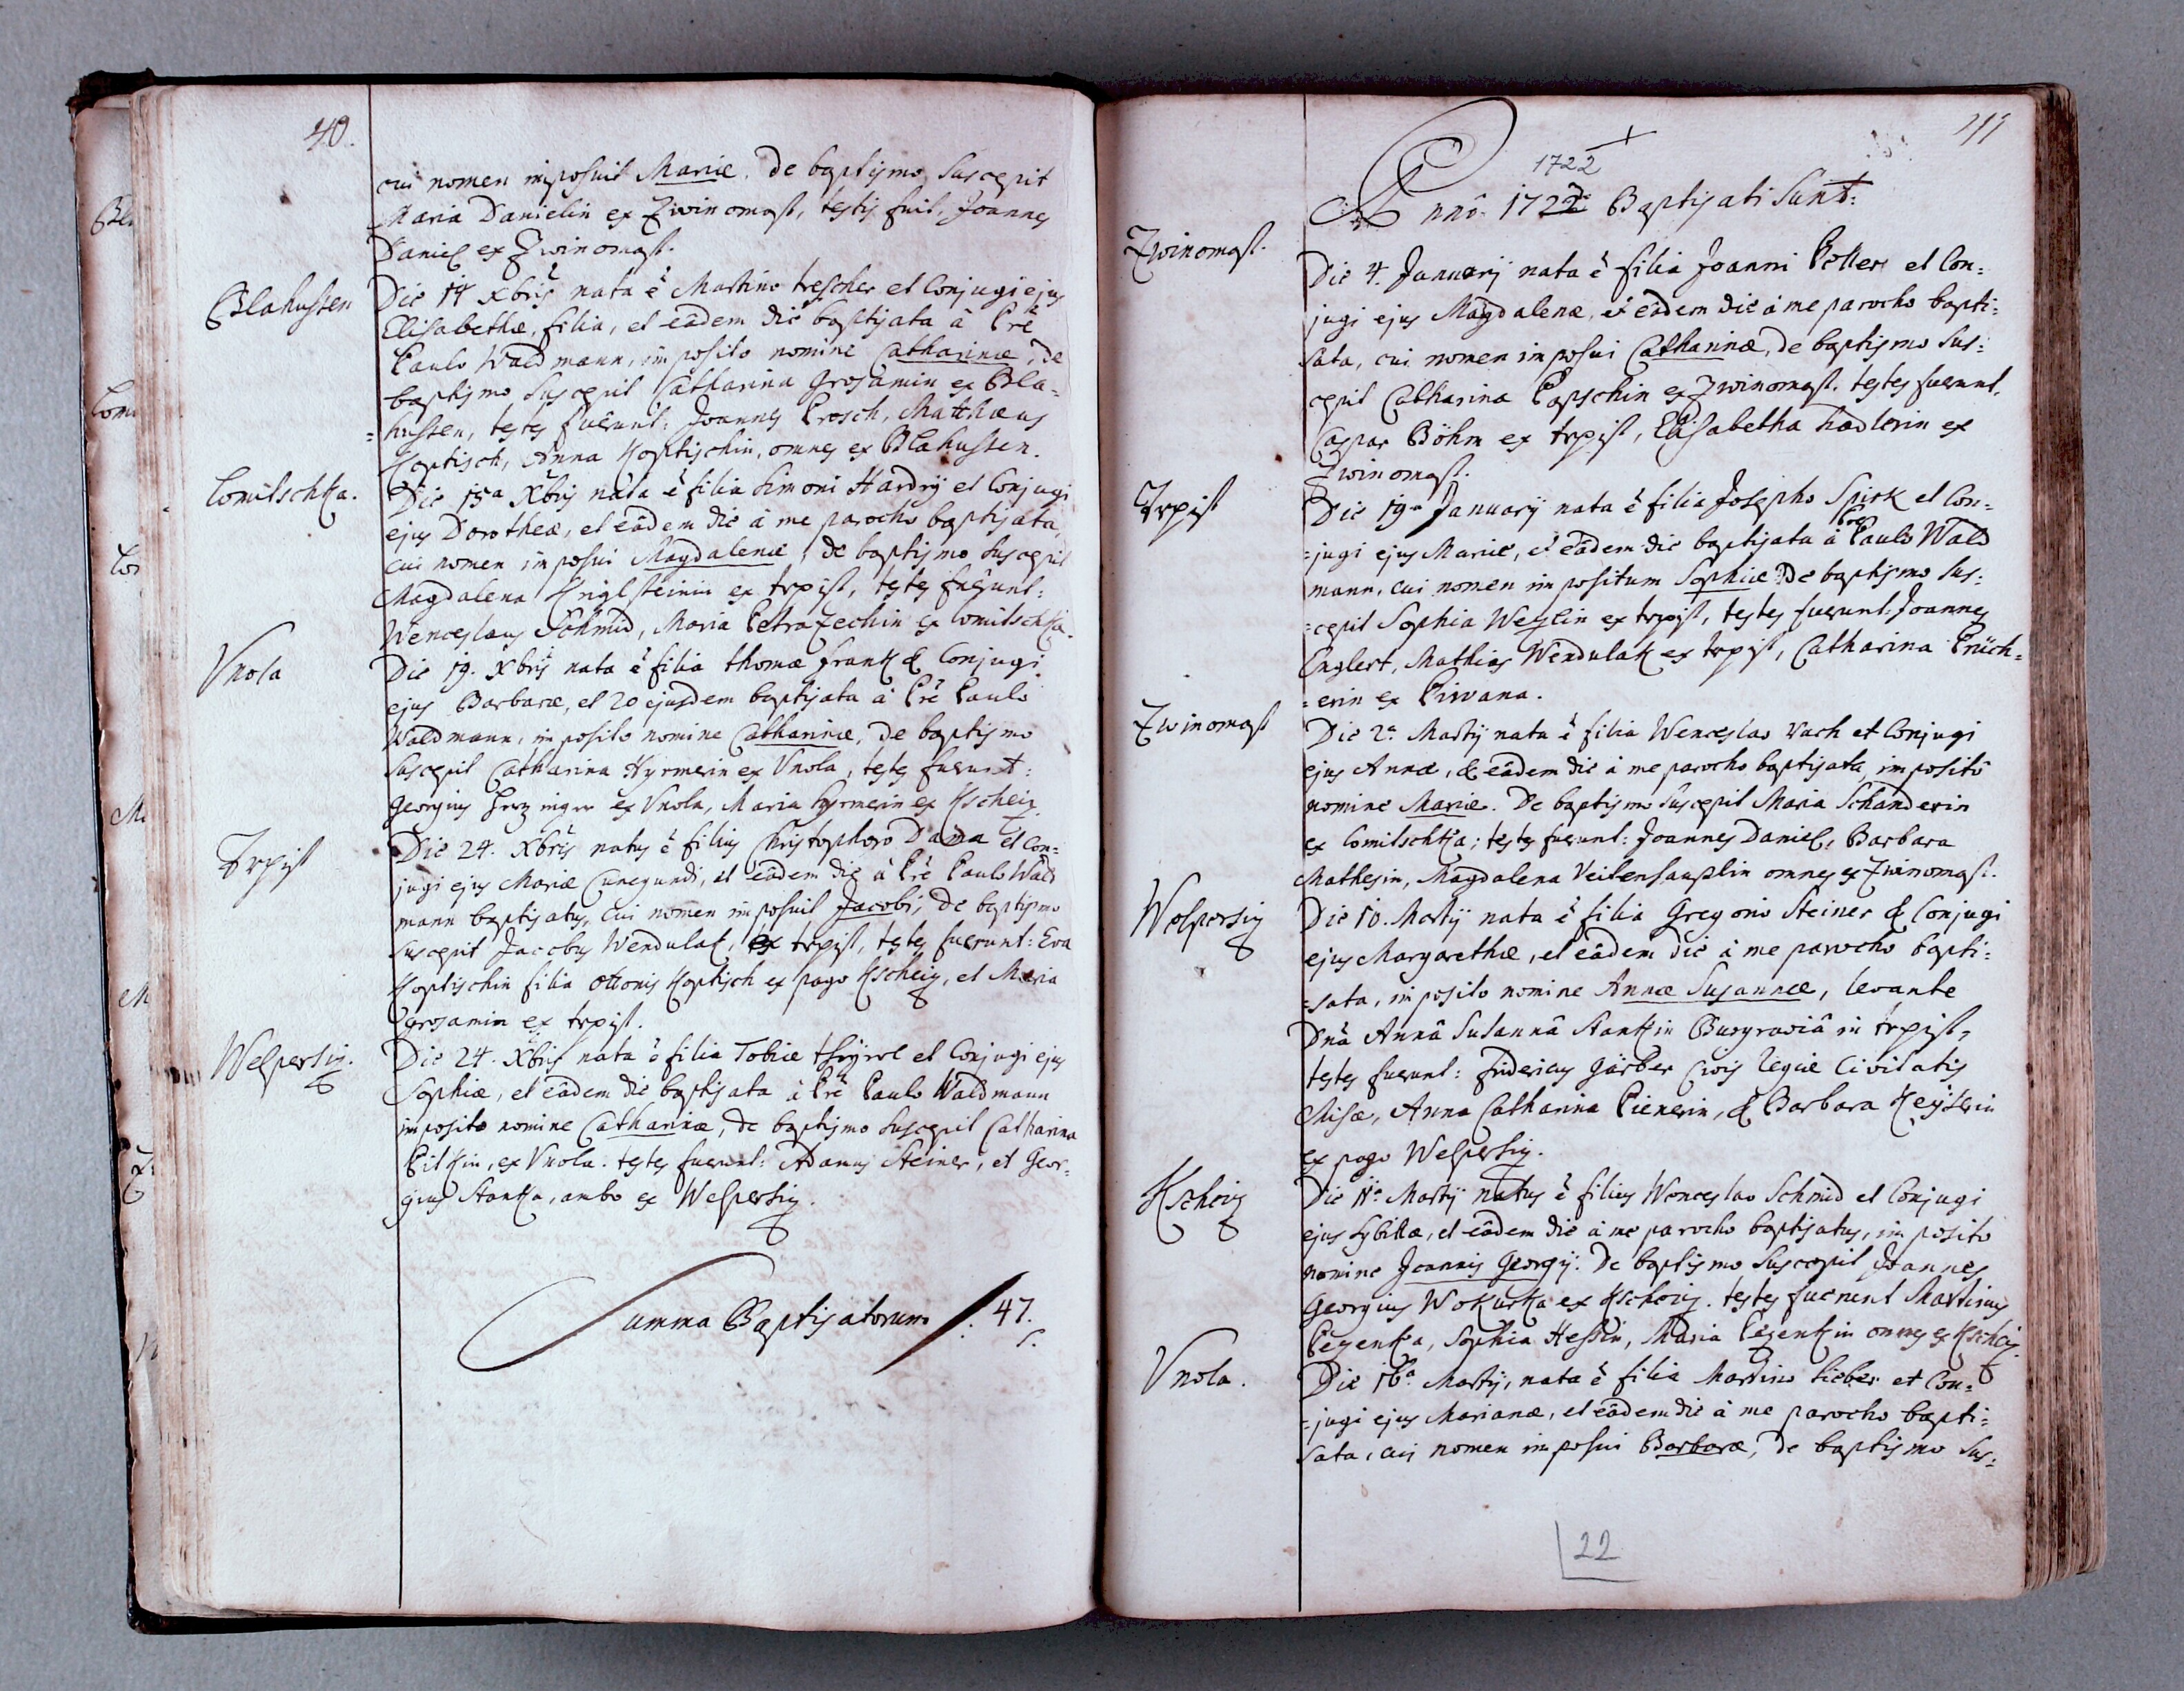 40.
cui nomen imposuit Mariæ. De baptismo suscepit
Maria Danielin ex Zwinomast, testis fuit, Joannes
Daniel ex Zwinomast.
Blahusten
Die 14 Xbris nata ẽ Martino trescher et Conjugi ejus
Elisabethæ, filia, et eâdem die baptisata à Pre
Paulo Waldmann, imposito nomine Catharinæ, De
baptismo suscepit Catharina Grosamin ex Bla=
=husten, testes fuerunt: Joannes Prosch, Matthæus
Koptisch, Anna Koptischin, omnes ex Blahusten.
Lomitschka.
Die 15a Xbris nata ẽ filia Simoni Hardry et Conjugi
ejus Dorotheæ, et eâdem die à me parocho baptisata,
cui nomen imposui Magdalenæ, de baptismo suscepit
Magdalena ex trpist, testes fuerunt:
Wenceslaus Schmid, Maria Petrazechin ex Lomitschka.
Vnola
Die 19. Xbris nata ẽ filia thomæ frank & Conjugi
ejus Barbaræ, et 20 ejusdem baptisata à Pre Paulo
Waldmann, imposito nomine Catharinæ, De baptismo
suscepit Catharina Hyrmerin ex Vnola, testes fuerunt:
Georgius ex Vnola, Maria Hyrmerin ex Kscheiz.
Trpist
Die 24. Xbris natus ẽ filius Christophoro Dama et Con=
jugi ejus Mariæ Cunegundi, et eâdem die à Pre Paulo Wald
mann baptisatus, cui nomen imposuit Jacobi, De baptismo
suscepit Jacobus Wendulak, ex trpist, testes fuerunt: Eva
Koptischin filia ottonis Koptisch ex pago Kscheiz, et Maria
grosamin ex trpist.
Welpersiz.
Die 24. Xbris nata ẽ filia Tobiæ et Conjugi ejus
Sophiæ, et eâdem die baptisata à Pre Paulo Waldmann
imposito nomine Catharinæ, de baptismo suscepit Catharina
Pitkin, ex Vnola. testes fuerunt: Adamus Steiner, et Geor=
gius Stanka, ambo ex Welpersiz.
Summa Baptisatorum: 47.
S.
1722
Annô 1722 Baptisati sunt:
Zwinomast.
Die 4. Januarij nata ẽ filia Joanni Peller et Con=
jugi ejus Magdalenæ, et eâdem die à me parocho bapti=
sata, cui nomen imposui Catharinæ, de baptismo sus=
cepit Catharina Papschin ex Zwinomast. testes fuerunt,
Caspar Böhm ex trpist, Elisabetha Hadlerin ex
Zwinomast.
Trpist
Die 19a Januarij nata ẽ filia Josepho Spisk et Con=
=jugi ejus Mariæ, et eâdem die baptisata à Pre Paulo Wald
mann, cui nomen impositum Sophiæ. De baptismo sus=
=cepit Sophia Weyslin ex trpist, testes fuerunt: Joannes
Englert, Mathias Wendulak ex trpist, Catharina Prüch=
=erin ex Piwana.
Zwinomast
Die 2a Martij nata ẽ filia Wenceslao Vach et Conjugi
ejus Annæ, & eâdem die à me parocho baptisata, imposito
nomine Mariæ. De baptismo suscepit Maria Schanderin
ex Lomitschka; testes fuerunt: Joannes Daniel, Barbara
Mathesin, Magdalena Veitensauptin omnes ex Zwinomast.
Welpersiz
Die 10. Martij nata ẽ filia Gregorio Steiner & Conjugi
ejus Margarethæ, et eâdem die à me parocho bapti=
=sata, imposito nomine Annæ Susannæ, levante
Dnâ Annâ Susannâ Stankin Burgraviâ in trpist,
testes fuerunt: fridericus Gärber Civis Regiæ Civitatis
Misæ, Anna Catharina Pienerin, & Barbara Keyslerin
ex pago Welpersiz.
Kscheiz
Die 11a Martij natus ẽ filius Wenceslao Schmid et Conjugi
ejus Sybillæ, et eâdem die à me parocho baptisatus, imposito
nomine Joannis Georgij. De baptismo suscepit Joannes
Georgius Wokurka ex Kscheiz. testes fuerunt Martinus
Pegenka, Sophia Hessin, Maria Pegenkin omnes ex Kscheiz.
Vnola.
Die 16a Martij, nata ẽ filia Martino Lieber et Con=
=jugi ejus Marianæ, et eâdem die à me parocho bapti=
sata, cui nomen imposui Barbaræ, De baptismo sus=
22